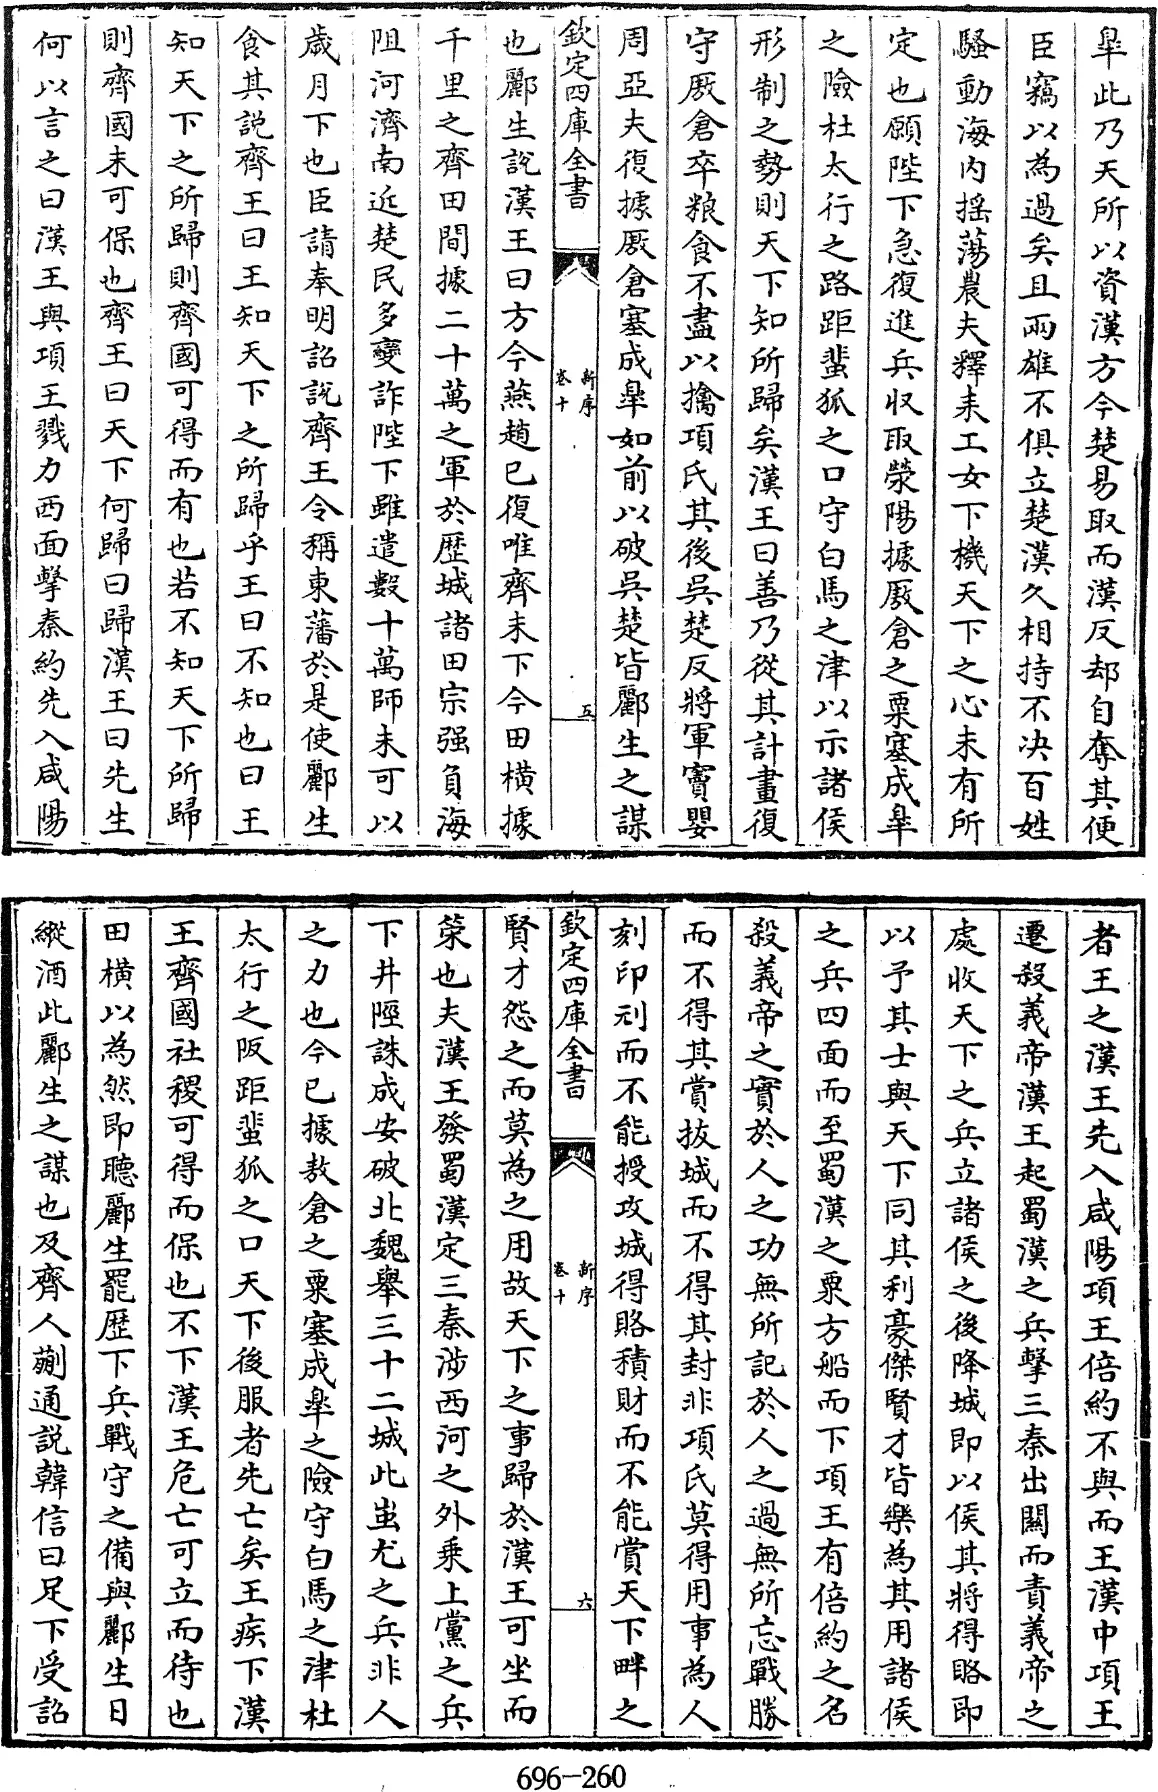 臯此乃天所以資漢方今楚易取而漢反却自奪其便
臣竊以為過矣且兩雄不俱立楚漢久相持不決百姓
騷動海内揺蕩農夫釋耒工女下機天下之心未有所
定也願陛下急復進兵收取滎陽據厫倉之粟塞成臯
之險杜太行之路距蜚狐之口守白馬之津以示諸侯
形制之勢則天下知所歸矣漢王曰善乃從其計畫復
守厫倉卒粮食不盡以擒項氏其後吳楚反將軍竇嬰
周亞夫復據厫倉塞成臯如前以破吳楚皆酈生之謀
欽定四庫全書
新序
卷十
五
也酈生說漢王曰方今燕趙已復唯齊未下今田橫據
千里之齊田間據二十萬之軍於歴城諸田宗强負海
阻河濟南近楚民多變詐陛下雖遣數十萬師未可以
歲月下也臣請奉明詔說齊王令稱東藩於是使酈生
食其說齊王曰王知天下之所歸乎王曰不知也曰王
知天下之所歸則齊國可得而有也若不知天下所歸
則齊國未可保也齊王曰天下何歸曰歸漢王曰先生
何以言之曰漢王與項王戮力西面擊秦約先入咸陽
者王之漢王先入咸陽項王倍約不與而王漢中項王
遷殺義帝漢王起蜀漢之兵擊三秦出關而責義帝之
處收天下之兵立諸侯之後降城即以侯其將得賂即
以予其士與天下同其利豪傑賢才皆樂為其用諸侯
之兵四面而至蜀漢之粟方船而下項王有倍約之名
殺義帝之實於人之功無所記於人之過無所忘戰勝
而不得其賞拔城而不得其封非項氏莫得用事為人
刻印刓而不能授攻城得賂積財而不能賞天下畔之
欽定四庫全書
新序
卷十
六
賢才怨之而莫為之用故天下之事歸於漢王可坐而
策也夫漢王發蜀漢定三秦涉西河之外乗上黨之兵
下井陘誅成安破北魏舉三十二城此蚩尤之兵非人
之力也今已據敖倉之粟塞成臯之險守白馬之津杜
太行之阪距蜚狐之口天下後服者先亡矣王疾下漢
王齊國社稷可得而保也不下漢王危亡可立而待也
田橫以為然即聽酈生罷歴下兵戰守之備與酈生日
縱酒此酈生之謀也及齊人蒯通説韓信曰足下受詔
696-260